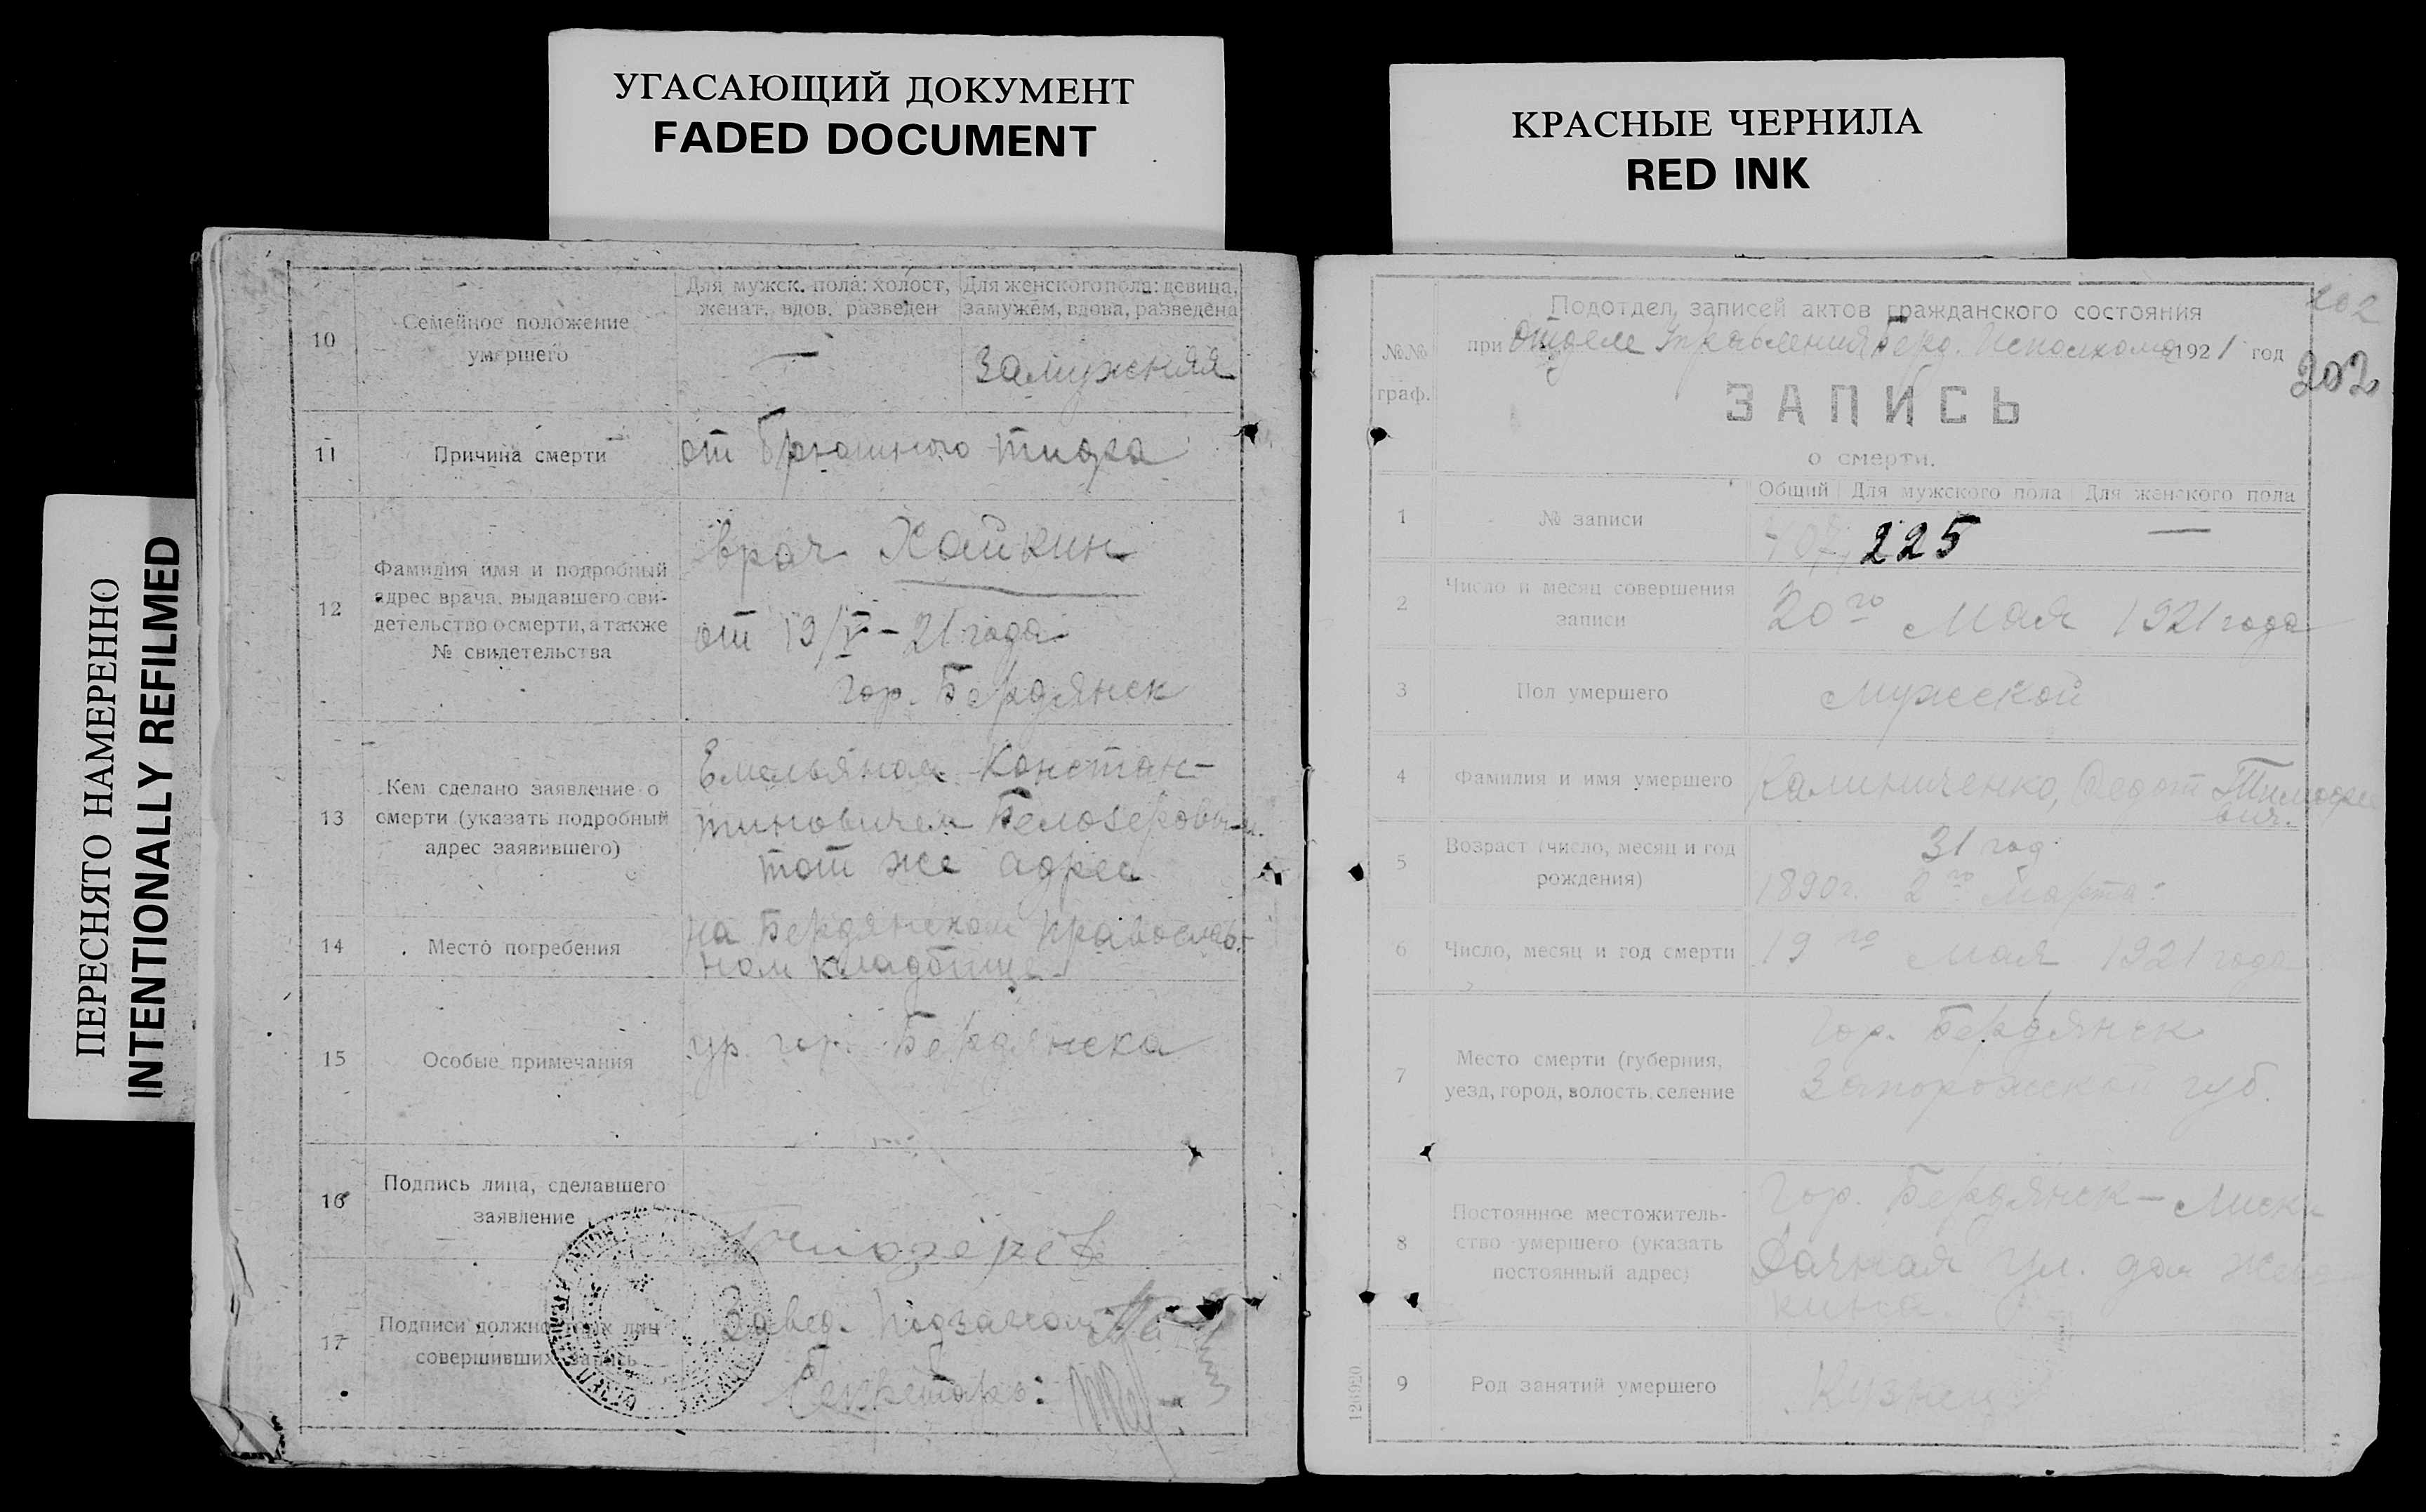 УГАСАЮЩИЙ ДОКУМЕНТ
FADED DOCUMENT
КРАСНЫЕ ЧЕРНИЛА
RED INK
ПЕРЕСНЯТО НАМЕРЕННО
INTENTIONALLY REFILMED
10
Семейное положение
умершего
Для мужск. пола: холост,
женат, вдов, разведен
Для женского пола: девица,
замужем, вдова, разведена
—
Замужняя
11
Причина смерти
от брюшного тифа
12
Фамилия имя и подробный
адрес врача, выдавшего сви-
детельство о смерти, а также
№ свидетельства
врач Хайкин
от 19/V – 21 года
гор. Бердянск
13
Кем сделано заявление о
смерти (указать подробный
адрес заявившего)
Емельяном Констан-
тиновичем Белозеровым.
тот же адрес
14
Место погребения
на Бердянском православ-
ном кладбище
15
Особые примечания
ур. гор. Бердянска
16
Подпись лица, сделавшего
заявление
Белозеров
17
Подписи должностных лиц
совершивших запись
Завед. Подзагсом
Секретарь:
202
202
№№
граф.
Подотдел записей актов гражданского состояния
при Отделе Управления Берд. Исполкома 1921 год
ЗАПИСЬ
о смерти.
1
№ записи
Общий
Для мужского пола
Для женского пола
407,
225
—
2
Число и месяц совершения
записи
20го Мая 1921 года
3
Пол умершего
Мужской
4
Фамилия и имя умершего
Калиниченко, Федот Тимофее
вич.
5
Возраст (число, месяц и год
рождения)
31 год
1890г. 2го Марта
6
Число, месяц и год смерти
19го Мая 1921 года
7
Место смерти (губерния,
уезд, город, волость, селение
гор. Бердянск
Запорожской губ.
8
Постоянное местожитель-
ство умершего (указать
постоянный адрес)
гор. Бердянск – Лиски
Дачная ул. дом
9
Род занятий умершего
Кузнец
126920